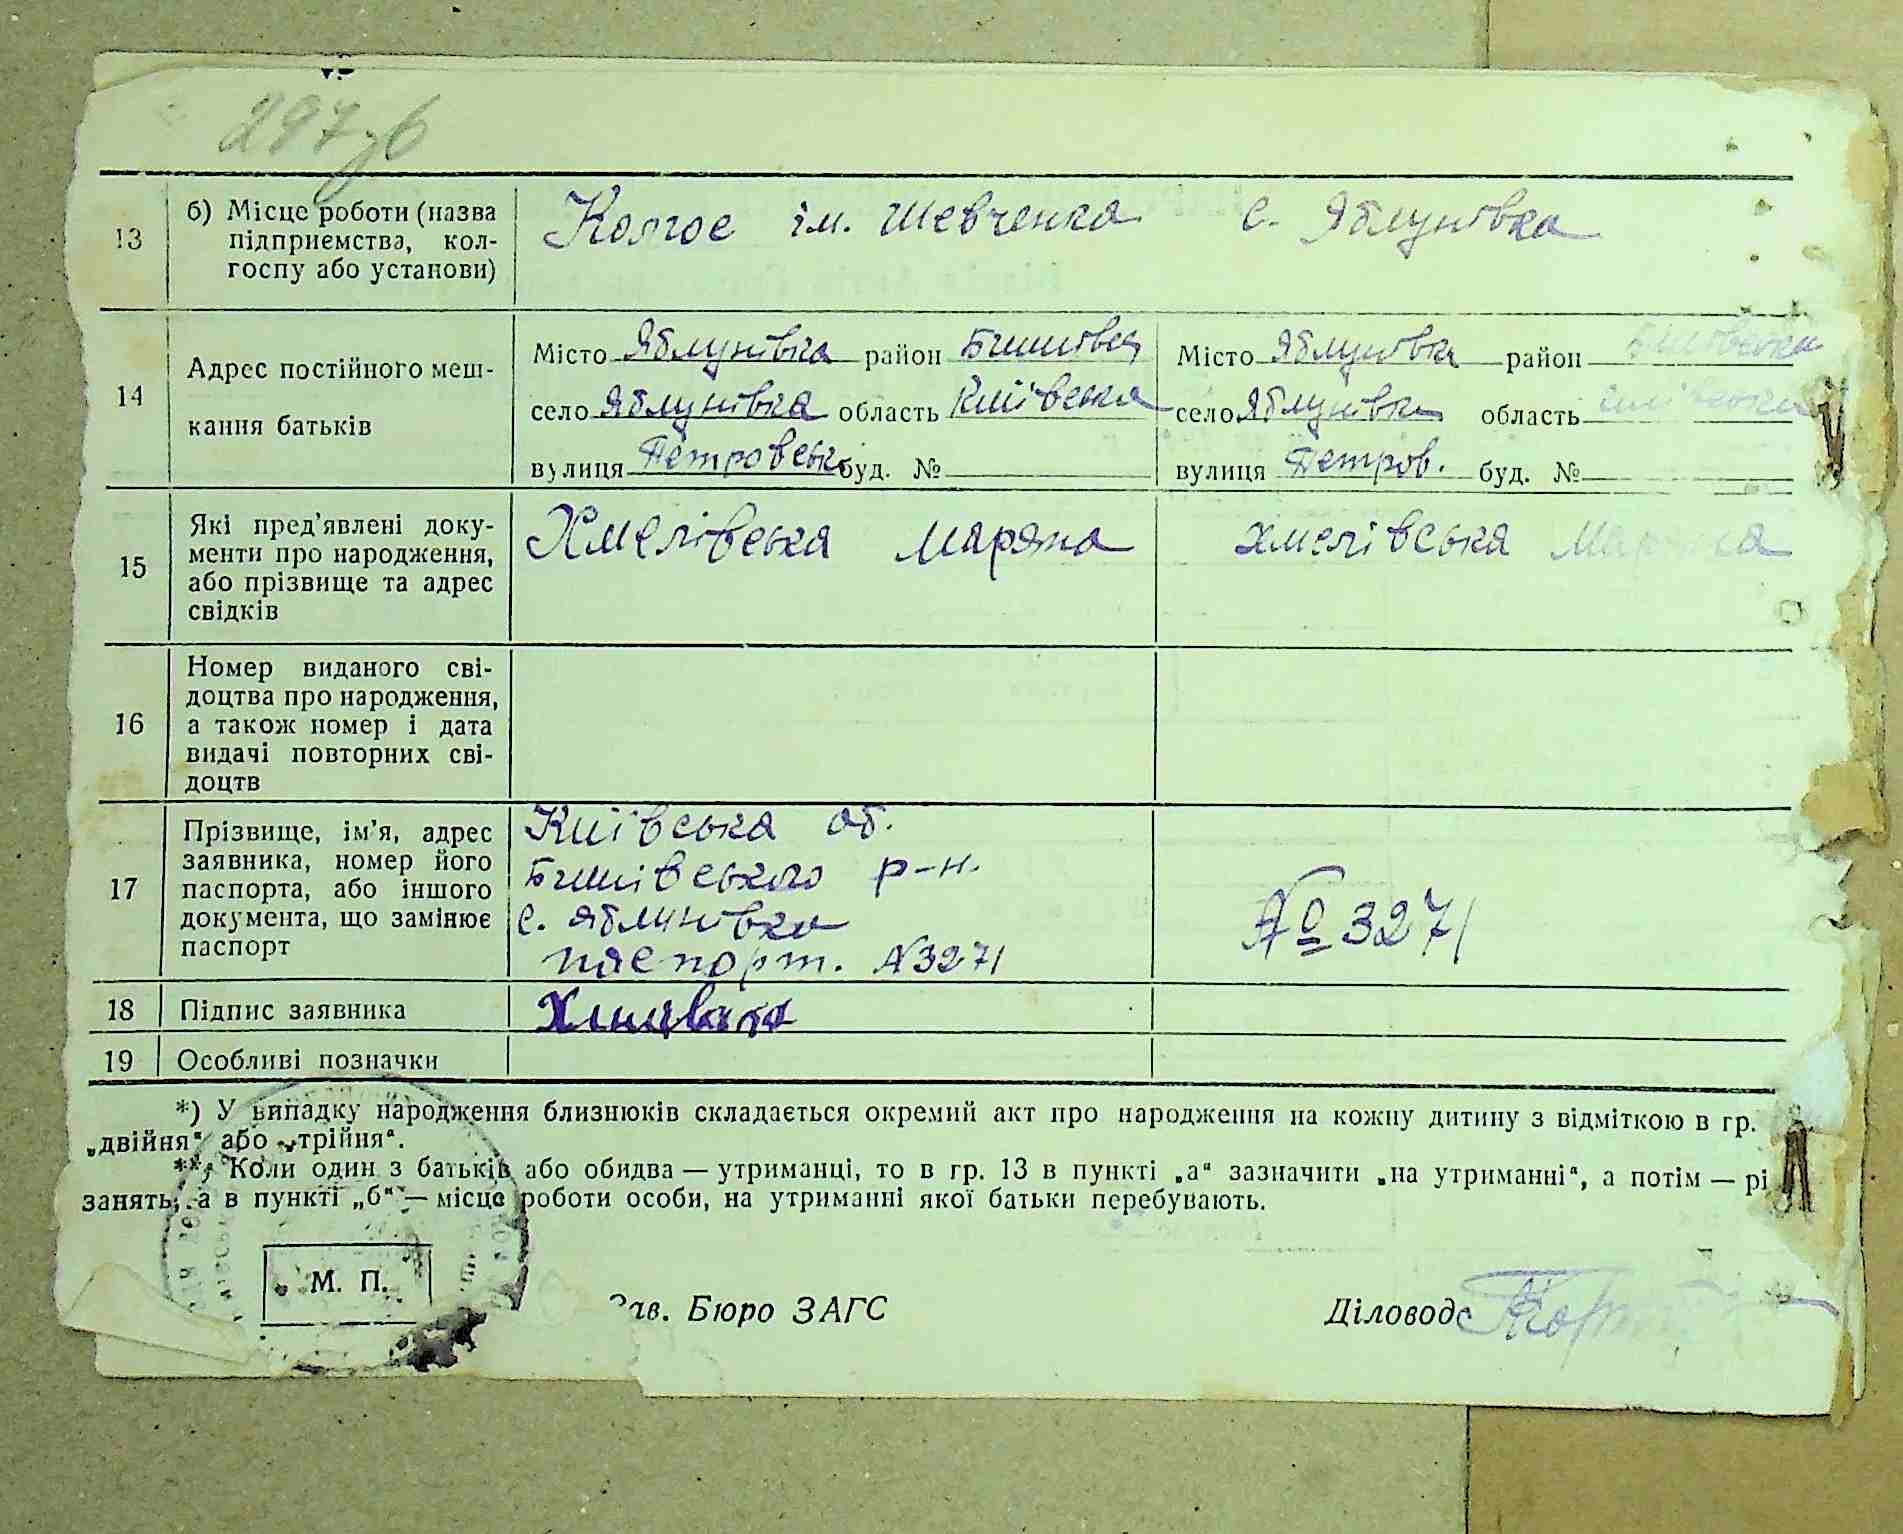 297зв
13 б) Місце роботи (назва підприємства, колгоспу або установи) Колгос ім. Шевченка с. Яблунівка
14 Адрес постійного меш-
кання батьків
Місто Яблунівка район Бишівськ Місто Яблунівка район Бишівська
село Яблунівка область Київська село Яблунівка область Київська
вулиця Петровськ буд. № вулиця Петров. буд. №
15 Які пред'явлені доку-
менти про народження,
або прізвище та адрес
свідків
Хмелівська Маряна Хмелівська Маряна
16 Номер виданого сві-
доцтва про народження,
а також номер і дата
видачі повторних сві-
доцтв
17 Прізвище, ім'я, адрес
заявника, номер його
паспорта, або іншого
документа, що замінює
паспорт
Київська об.
Бишівського р-н.
с. Яблунівка
паспорт. №3271
№ 3271
18 Підпис заявника
19 Особливі позначки
*) У випадку народження близнюків складається окремий акт про народження на кожну дитину з відміткою в гр.
„двійня“ або „трійня“.
**) Коли один з батьків або обидва — утриманці, то в гр. 13 в пункті „а“ зазначити „на утриманні“, а потім — рі
занять, а в пункті „б“ — місце роботи особи, на утриманні якої батьки перебувають.
М. П.
Зав. Бюро ЗАГС Діловодс